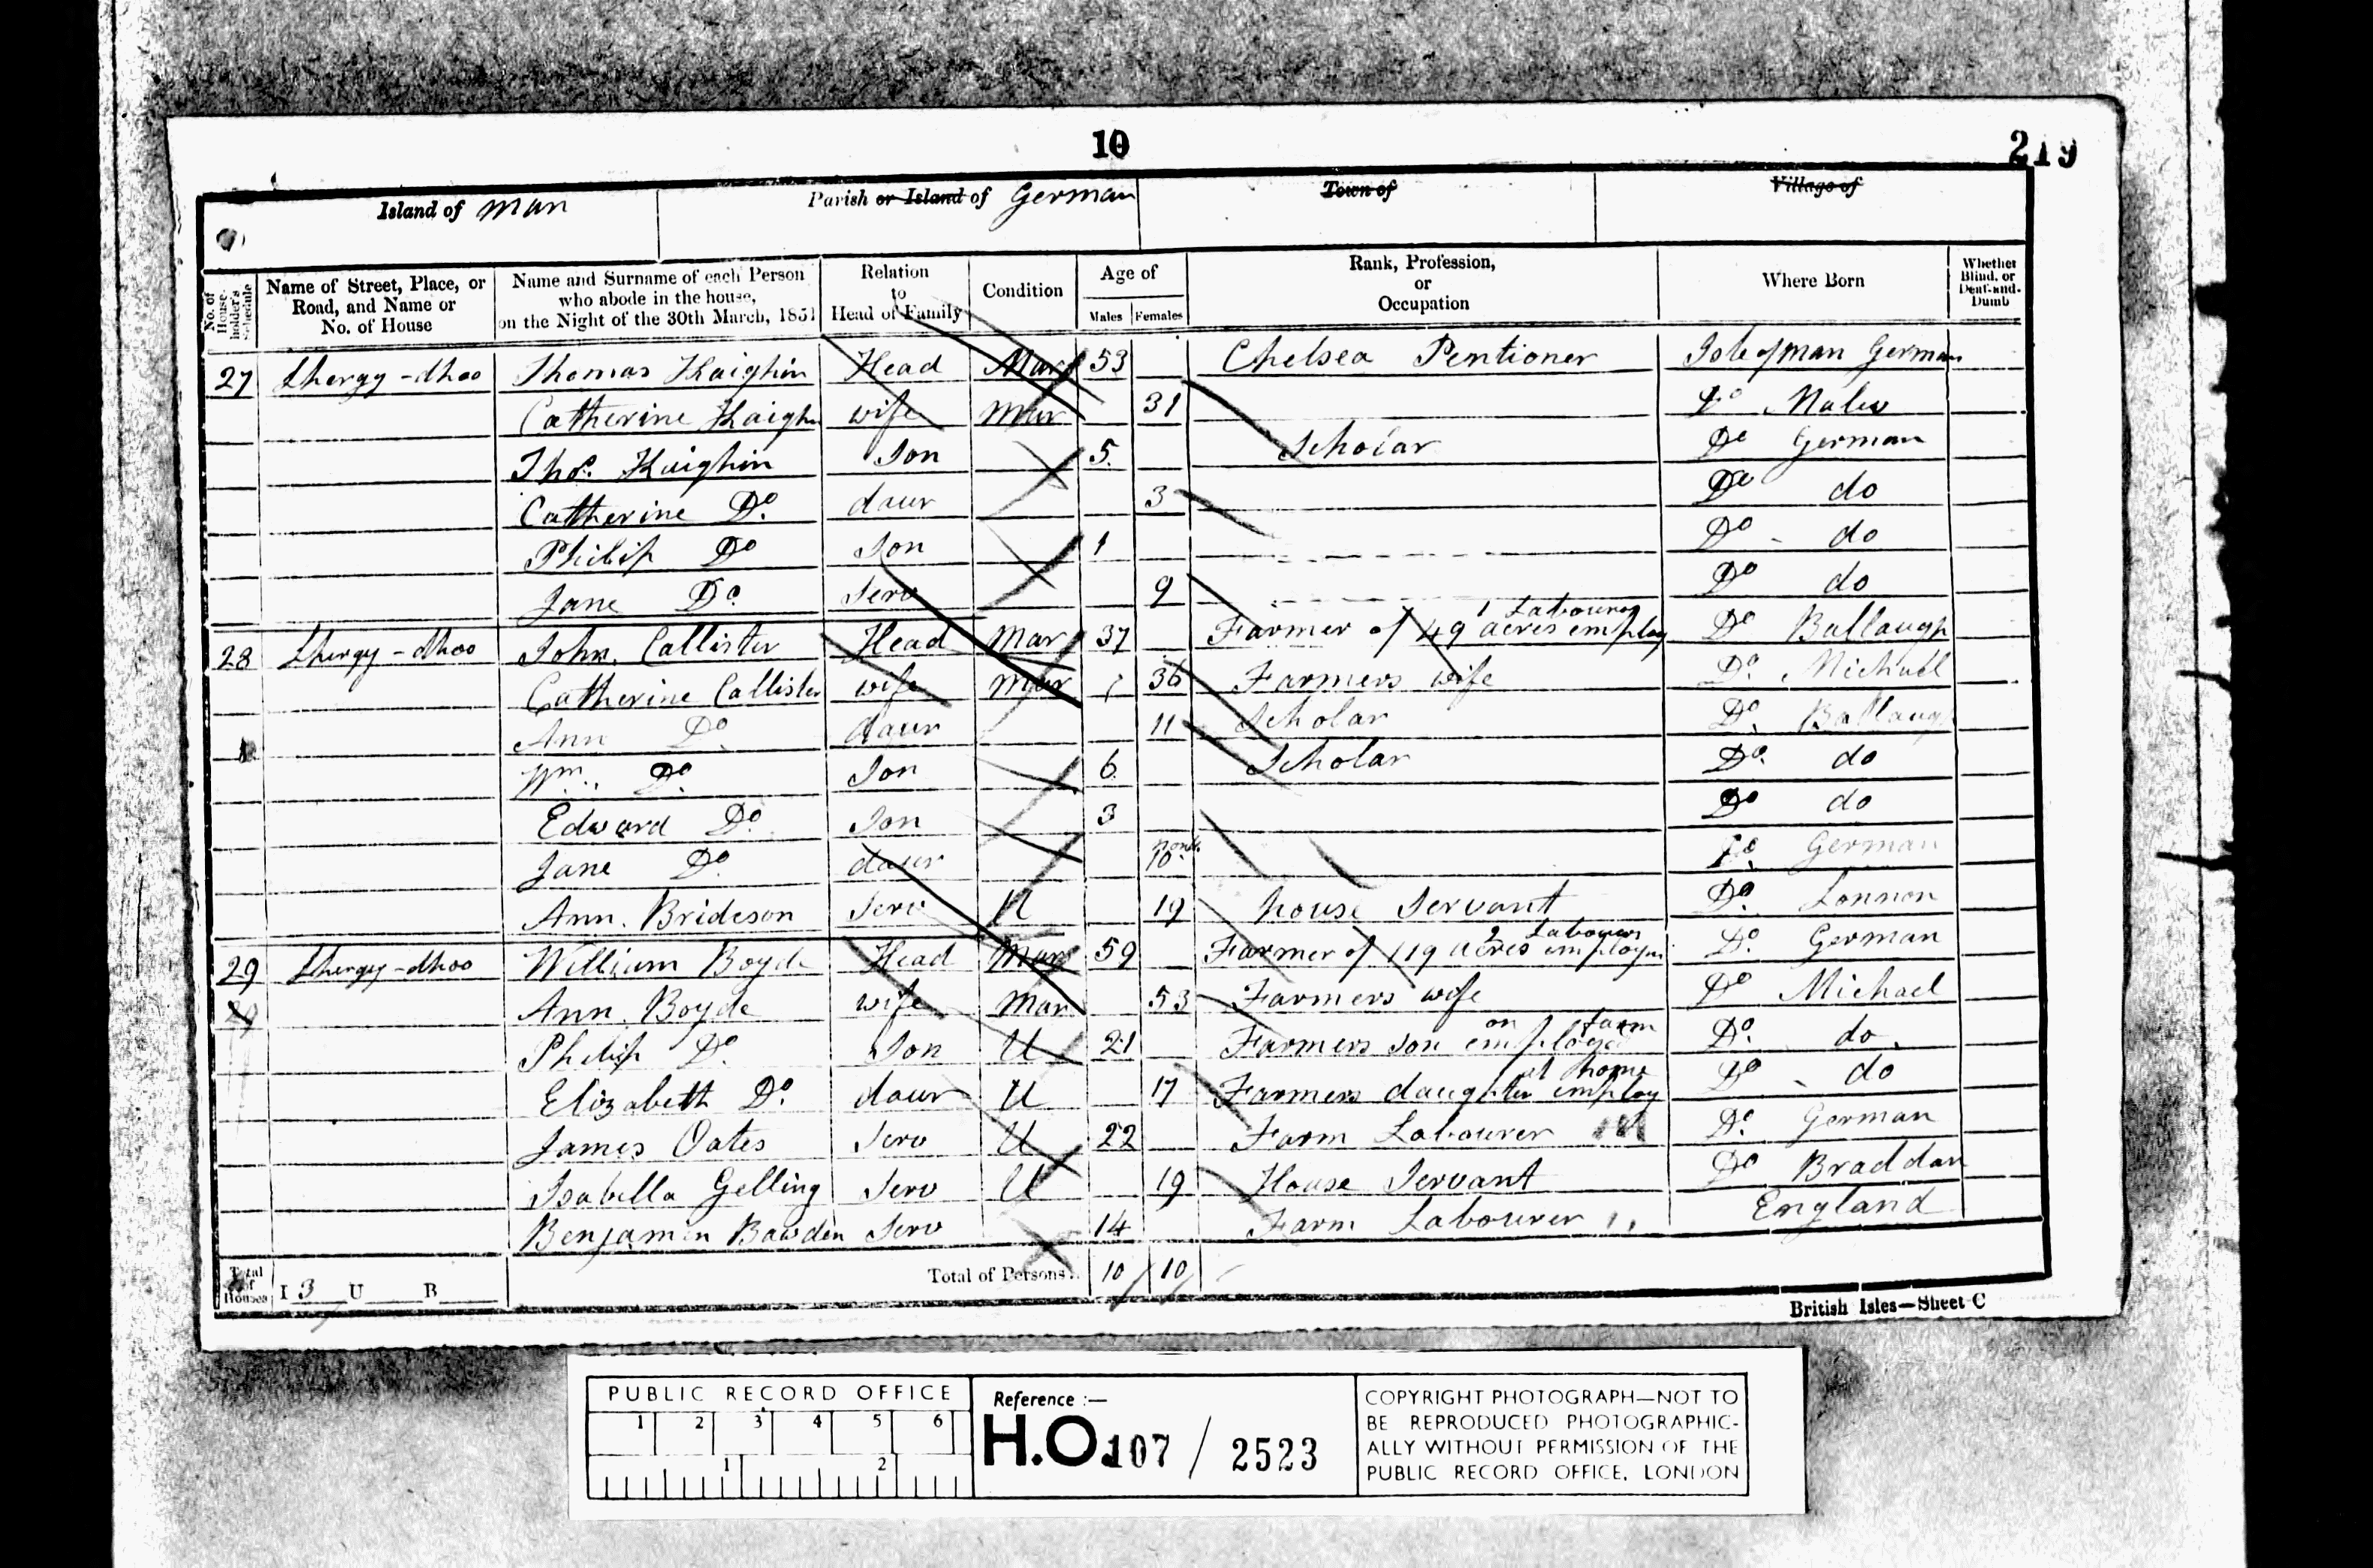 10
219
Island of Man Parish or Island of German Town of Village of
No. of House-holder's Schedule
Name of Street, Place, or Road, and Name or No. of House
Name and Surname of each Person who abode in the house, on the Night of the 30th March, 1851
Relation to Head of Family
Condition
Age of
Males Females
Rank, Profession, or Occupation
Where Born
Whether Blind, or Deaf-and-Dumb
27 Lhergy-dhoo Thomas Kaighin Head Mar 53 Chelsea Pentioner Isle of Man German
Catherine Kaighin wife Mar 31 Do Malew
Thos. Kaighin Son 5 Scholar Do German
Catherine Do. daur 3 Do do
Philip Do Son 1 Do - do
Jane Do. Serv 9 Do do
28 Lhergy-dhoo John Callister Head Mar 37 Farmer of 49 acres employ 1 Labourer Do Ballaugh
Catherine Callister wife Mar 36 Farmers wife Do. Michael
Ann Do daur 11 Scholar Do. Ballaug
Wm. Do. Son 6 Scholar Do. do
Edward Do. Son 3 Do do
Jane Do. daur 10 mont. Do. German
Ann. Brideson Serv U 19 house Servant Do. Lonnon
29 Lhergy-dhoo William Boyde Head Mar 59 Farmer of 119 acres employn 2 Labourers Do. German
Ann. Boyde wife Mar 53 Farmers wife Do Michael
Philip Do. Son U 21 Farmers son employed on farm Do. do.
Elizabeth Do. daur U 17 Farmers daughter employ at home Do - do
James Oates Serv U 22 Farm Labourer Do. German
Isabella Gelling Serv U 19 House Servant Do Braddan
Benjamin Bawden Serv 14 Farm Labourer England
Total of Houses I 3 U B Total of Persons.. 10 10
British Isles—Sheet C
PUBLIC RECORD OFFICE
1 2 3 4 5 6
1 2
Reference :—
H.O. 107 / 2523
COPYRIGHT PHOTOGRAPH—NOT TO
BE REPRODUCED PHOTOGRAPHIC-
ALLY WITHOUT PERMISSION OF THE
PUBLIC RECORD OFFICE, LONDON